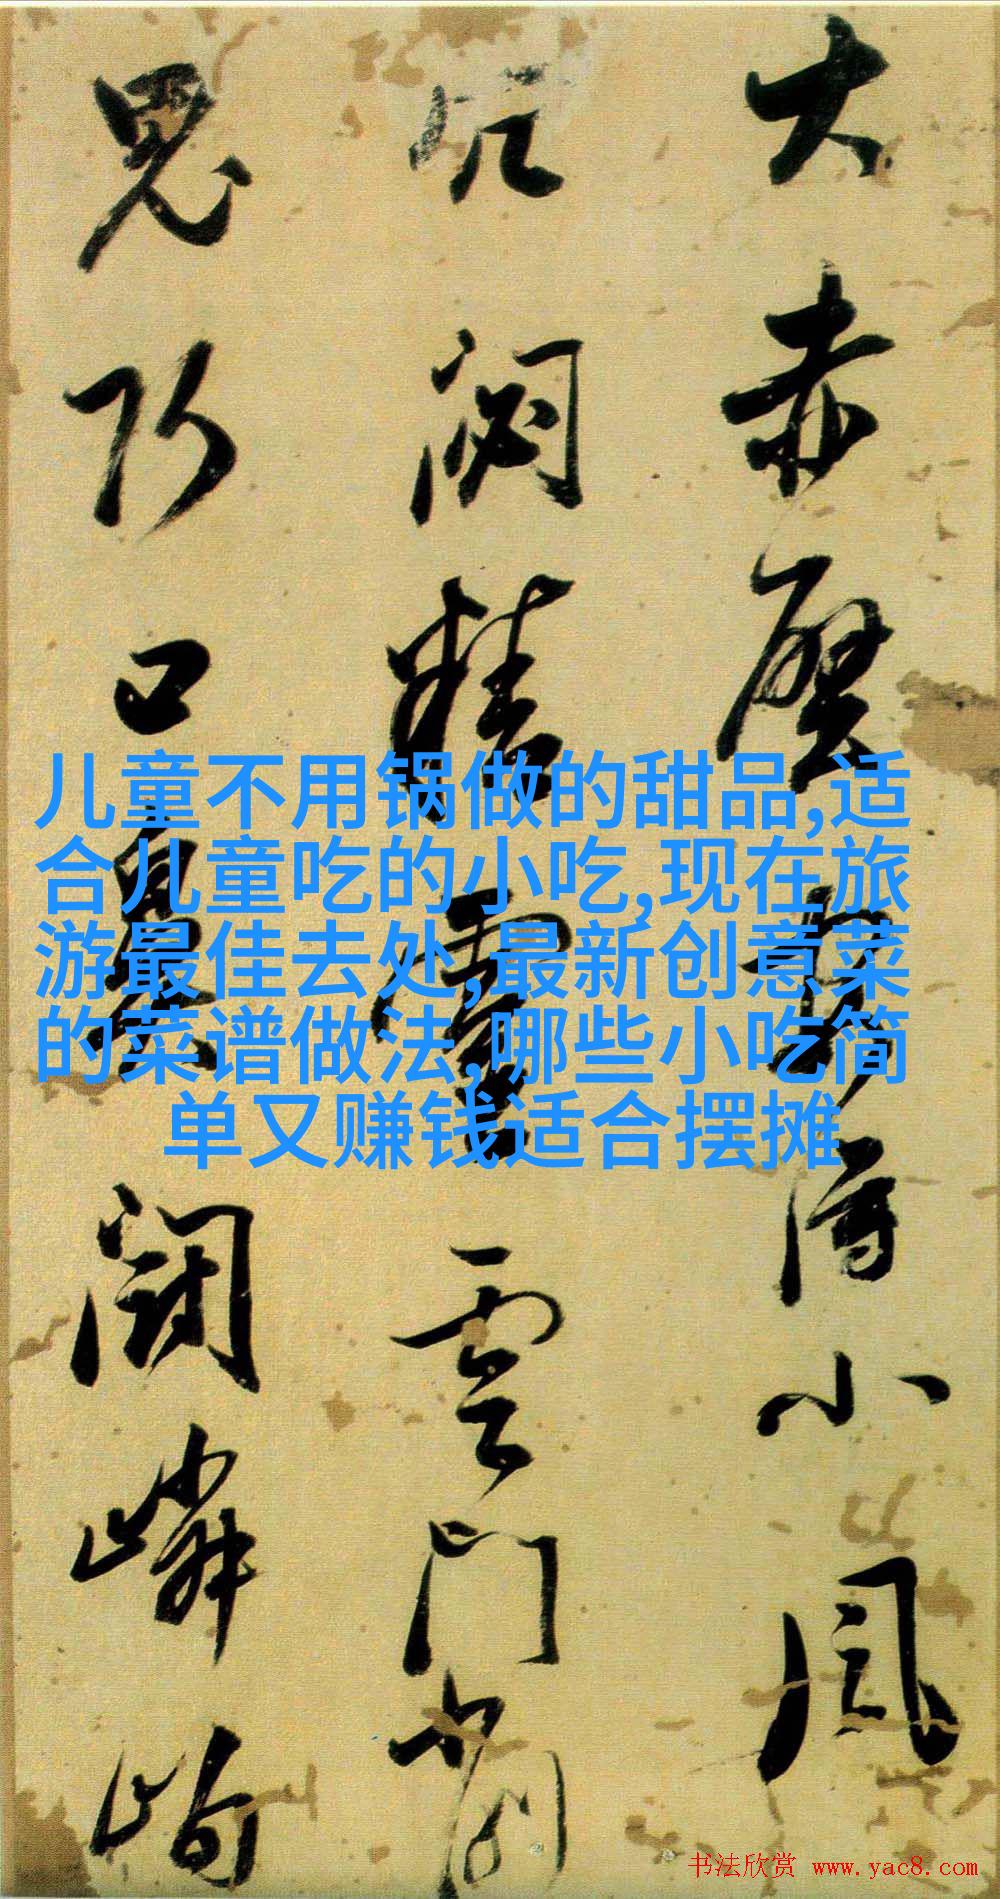 大赤壁得小風
精靈雲門
思所口嶙峋
儿童不用锅做的甜品,适
合儿童吃的小吃,现在旅
游最佳去处,最新创意菜
的菜谱做法,哪些小吃简
单又赚钱适合摆摊
书法欣赏 www.yac8.com